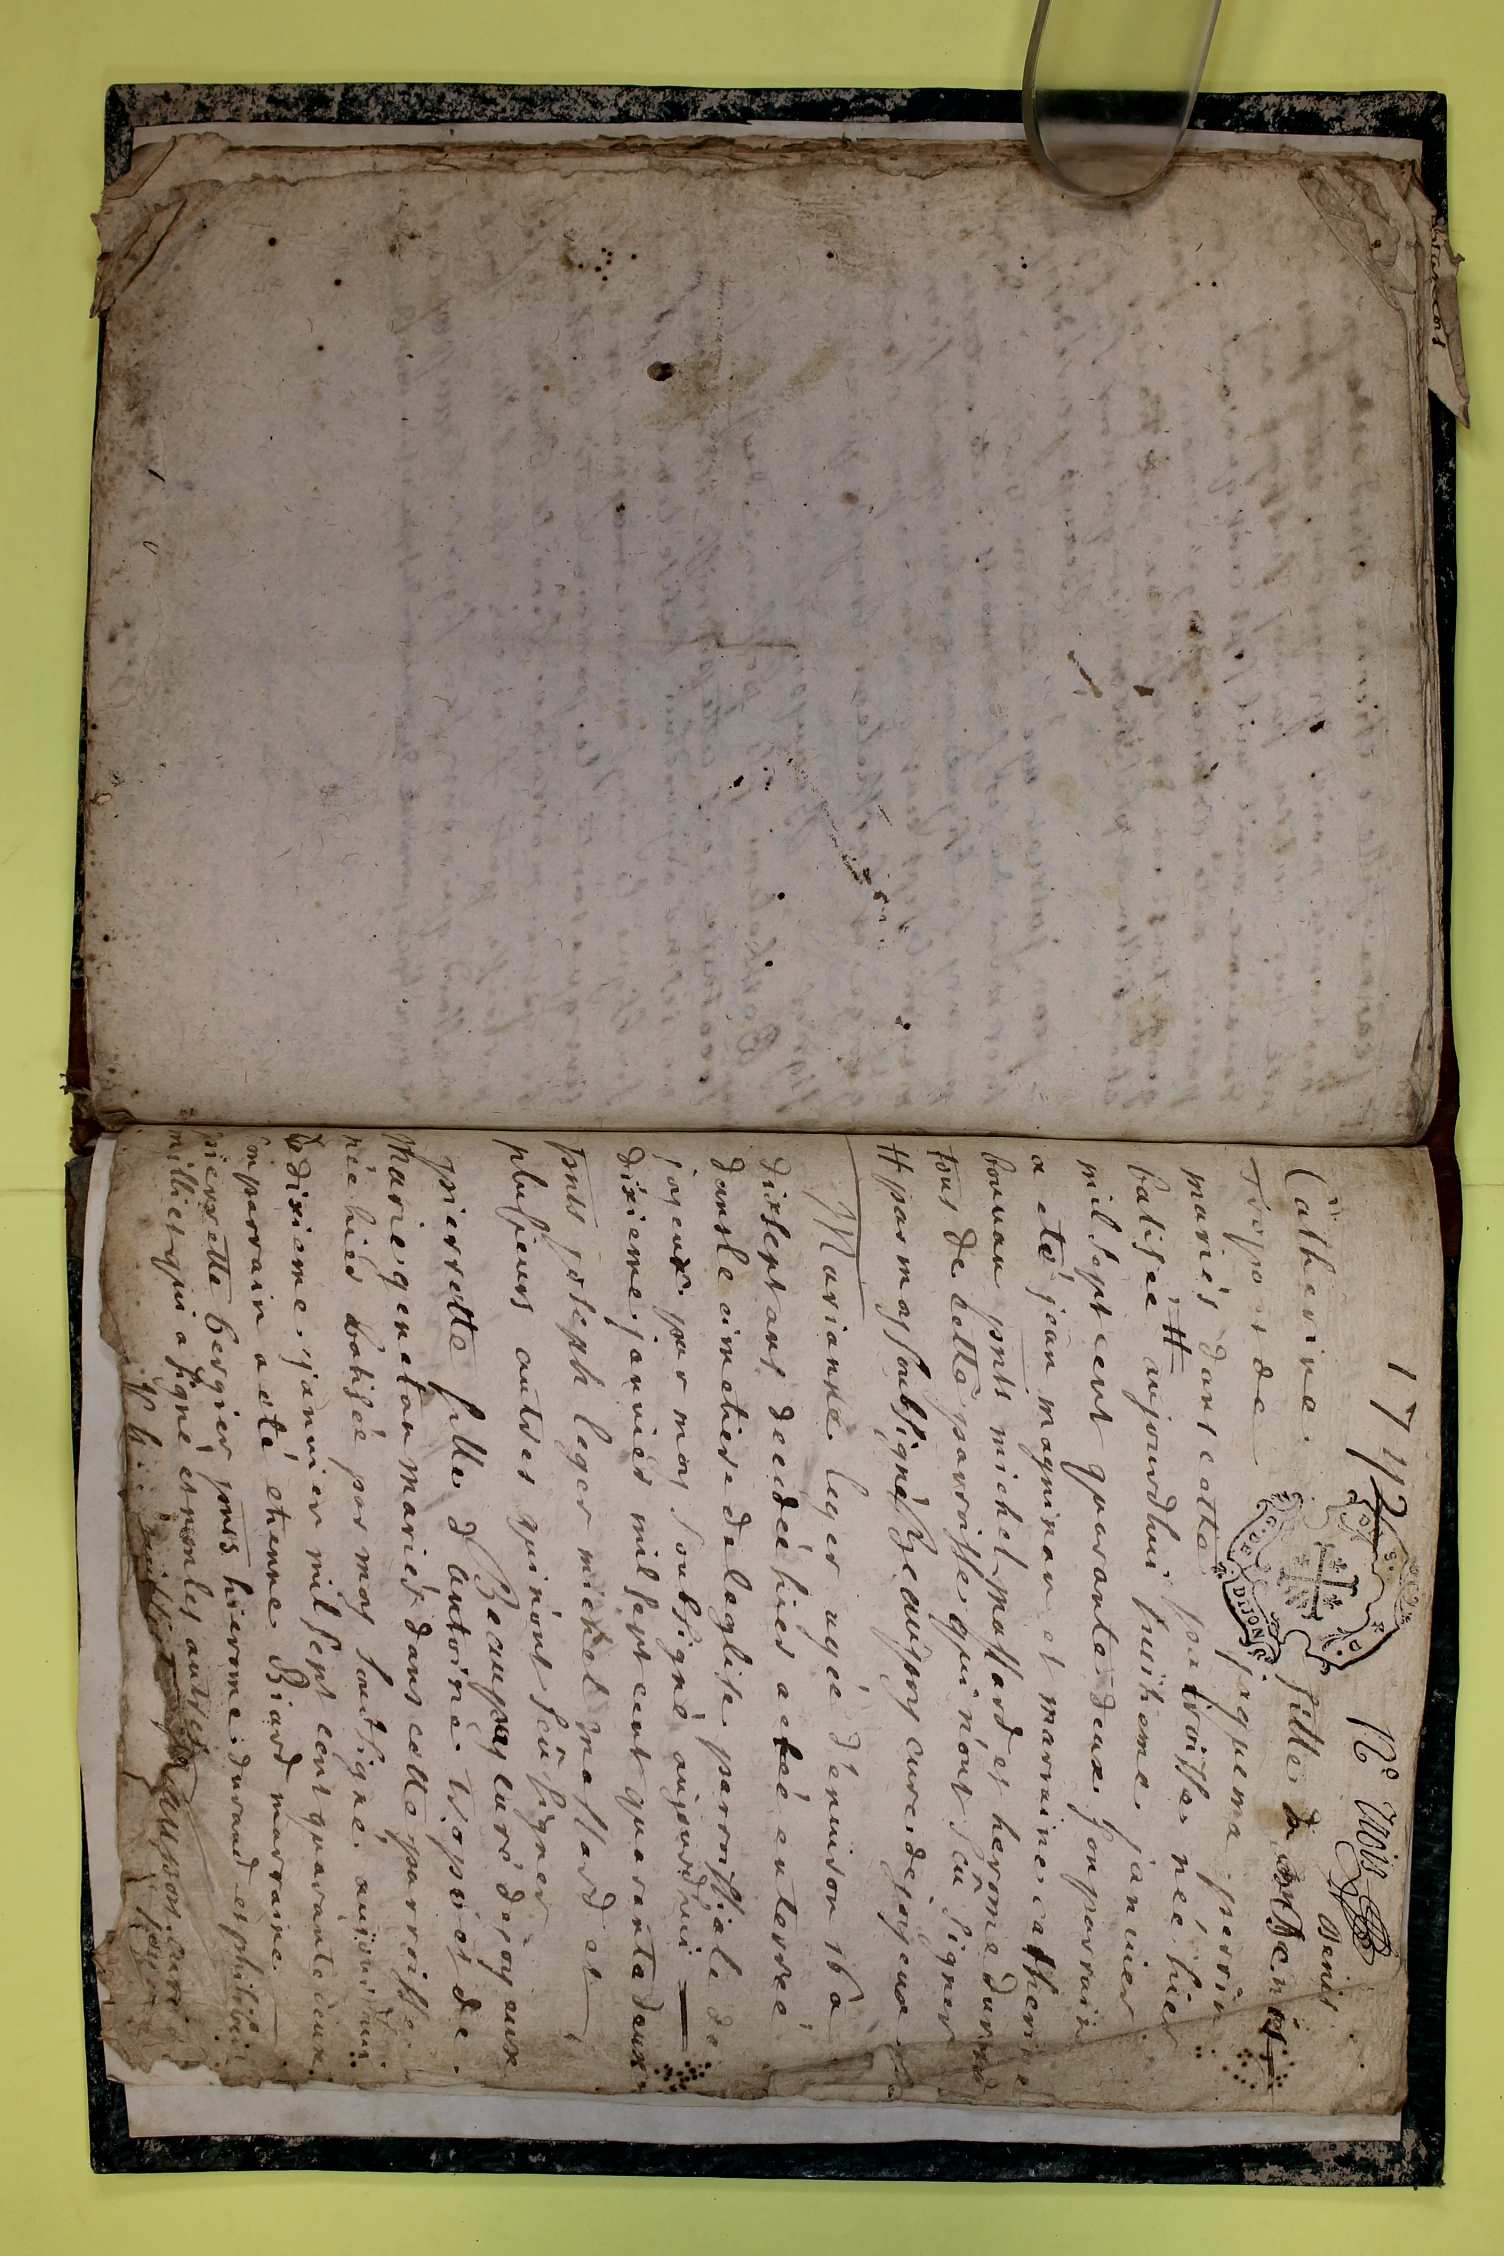 1742 No trois
Denis
Catherine fille de
tripoi et de jaquema perrin
mariés dans cette parroisse née hier
batisée # aujourdhui huiheme janvier
mil sept cent quarante deux son parrain
a eté jean magninau et marraine catherine
bouuau pnts michel mossard et herome durand
tous de cette parroisse qui n'ont sceu signer
# par moy soubsigné Beaupoy cure de joyeux
Marianne leger agée d'enuiron 16 a
dixsept ans decedée hier a eté enterrée
dans le cimetiere de leglise parroissiale de
joyeux par moy soubsigné aujourdhui
dixieme januier mil sept cent quarante deux
pnts joseph leger michel mossard et
plusieurs autres qui n'ont sceu signer
Beaupoy curé de joyeux
pierrette fille d'antoine tripoi et de
marie genetou mariés dans cette parroisse
née hier batisée par moy soubsigné aujourdhui
dixieme janvier mil sept cent quarante deux
parrain a eté etienne Biard marraine
pierrette bergier pnts hierome durand et philibert
milliet qui a signé et non les autres
Beaupoy curé
milliet
G. DE DIJON